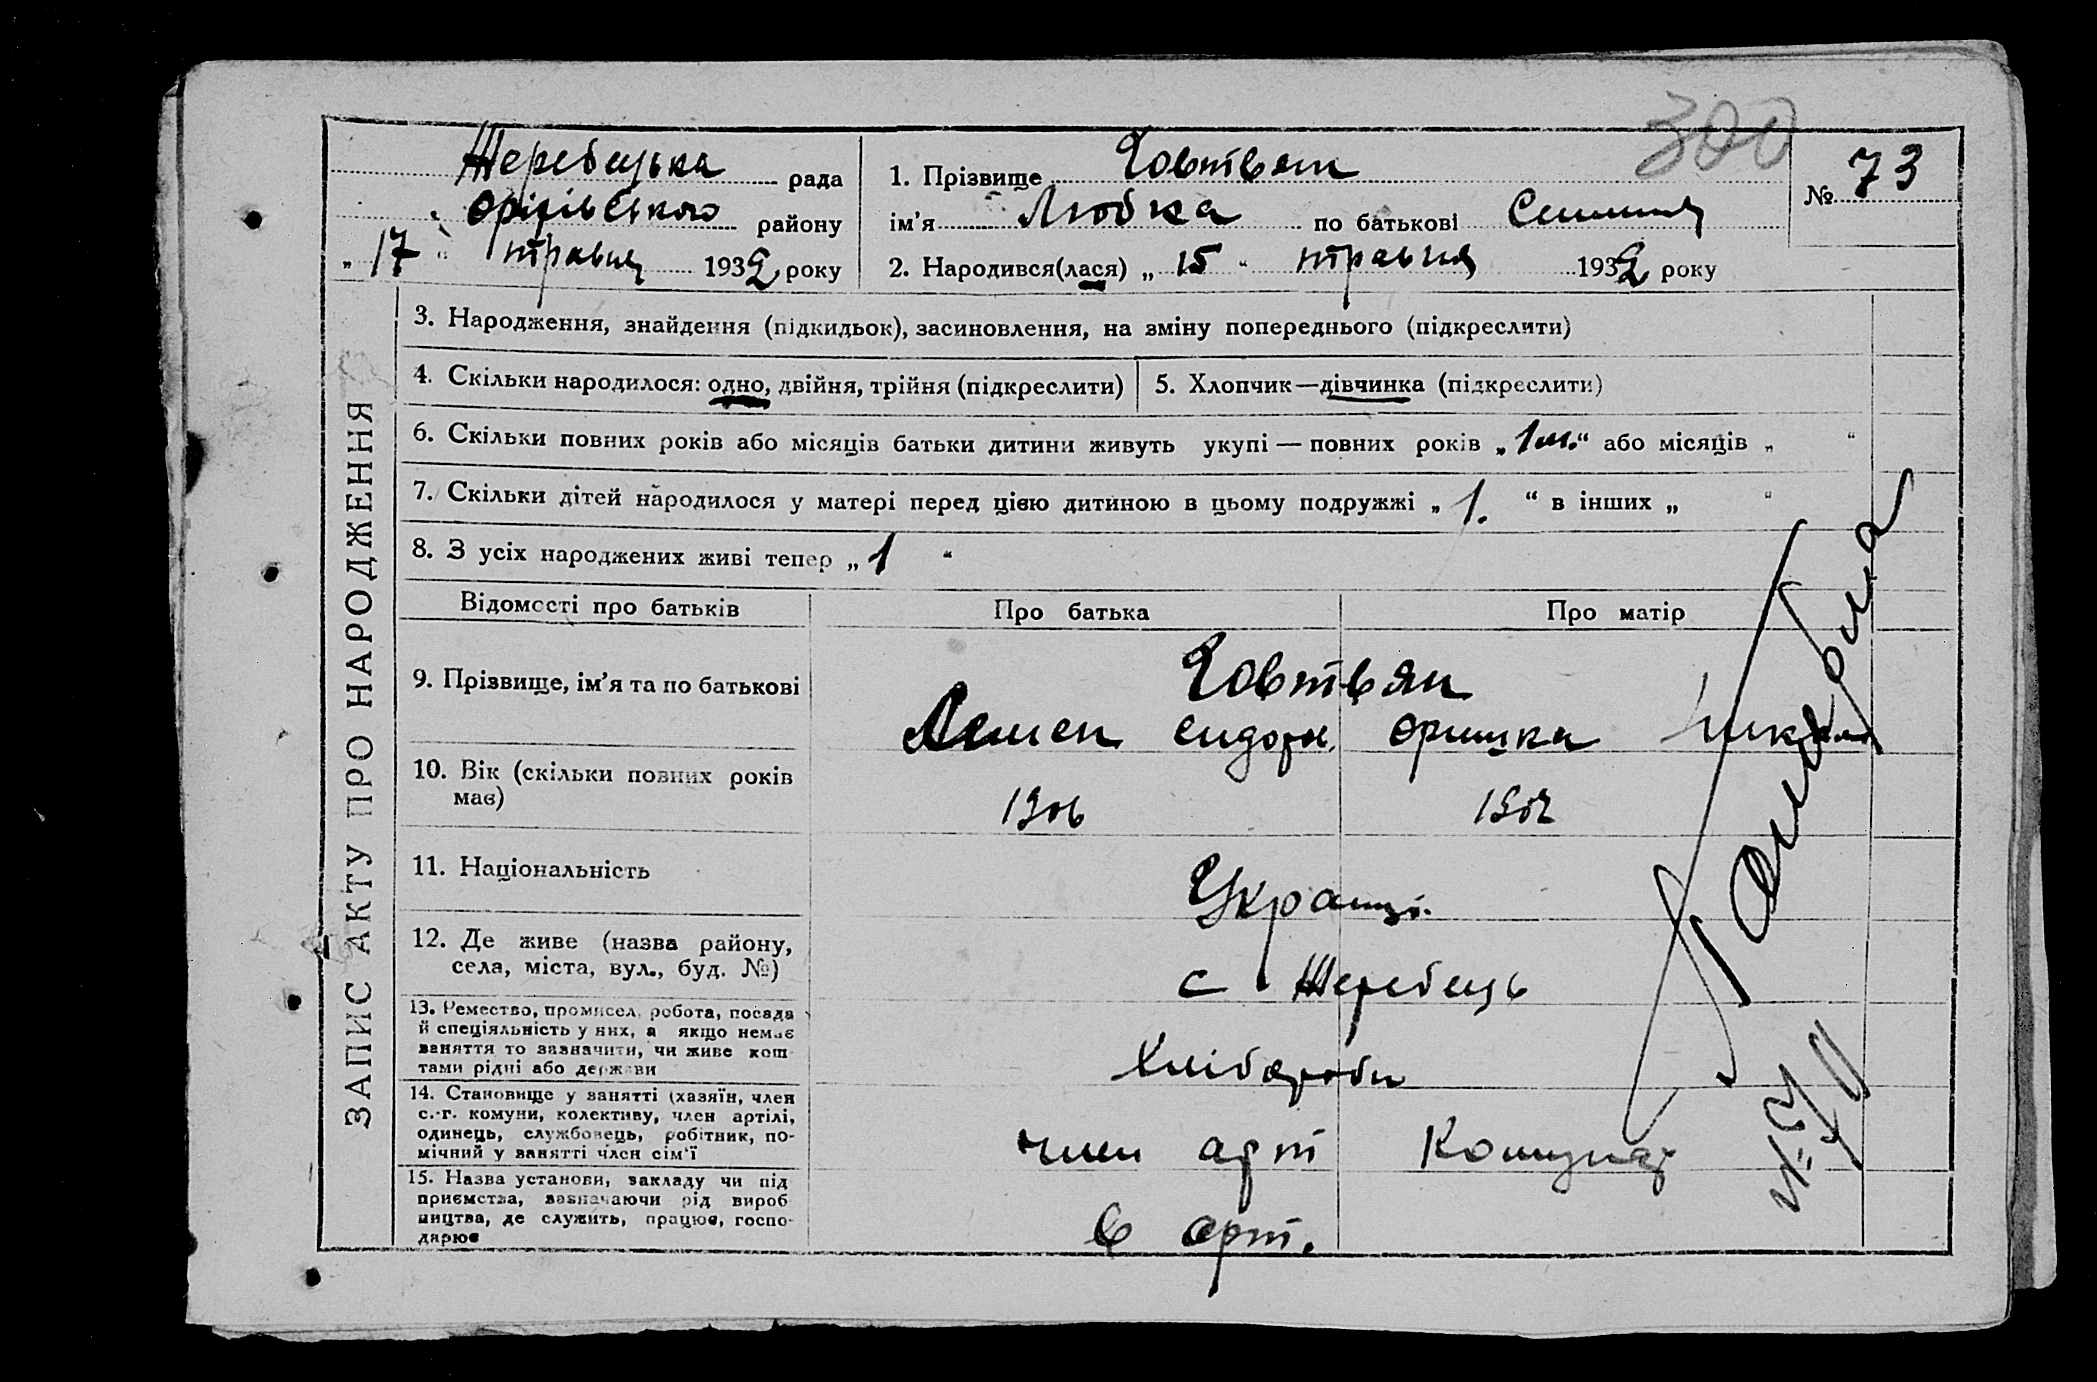 300
Жеребецька рада
Оріхівського району
„17“ травня 1932 року
1. Прізвище Човтвян
ім’я Любка по батькові
№ 73
2. Народився(лася) „15“ травня 1932 року
ЗАПИС АКТУ ПРО НАРОДЖЕННЯ
3. Народження, знайдення (підкидьок), засиновлення, на зміну попереднього (підкреслити)
4. Скільки народилося: одно, двійня, трійня (підкреслити)
5. Хлопчик—дівчинка (підкреслити)
6. Скільки повних років або місяців батьки дитини живуть укупі — повних років „ “ або місяців „ “
7. Скільки дітей народилося у матері перед цією дитиною в цьому подружжі „1.“ в інших „ “
8. З усіх народжених живі тепер „1“
Відомості про батьків
Про батька
Про матір
9. Прізвище, ім’я та по батькові
Човтвян
Оришка
10. Вік (скільки повних років
має)
1906
11. Національність
Українці
12. Де живе (назва району,
села, міста, вул., буд. №)
с Жеребець
13. Ремество, промисел, робота, посада
й спеціяльність у них, а якщо немає
заняття то зазначити, чи живе кош-
тами рідні або держави
Хлібороби
14. Становище у занятті (хазяїн, член
с.-г. комуни, колективу, член артілі,
одинець, службовець, робітник, по-
мічний у занятті член сім’ї
член арт
15. Назва установи, закладу чи під
приємства, зазначаючи рід вироб
ництва, де служить, працює, госпо-
дарює
в арт.